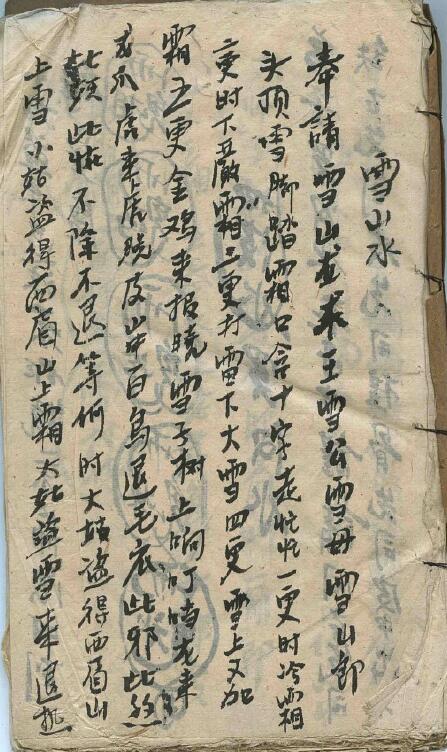 雪山水
奉請雪山龙王雪公雪母雪山郎
头頂雪脚踏霜口含十字走忙忙一更时冷霜
更时下嚴霜三更打雪下大雪四更雪上又加
霜五更金鸡来报晓雪子树上响叮噹龙来
爪虎来虎脱皮山中百鸟退毛衣此邪此
此怪不除不退等何时大姑盗得西眉山
上雪小姑盗得西眉山上霜大姑盗雪来退热